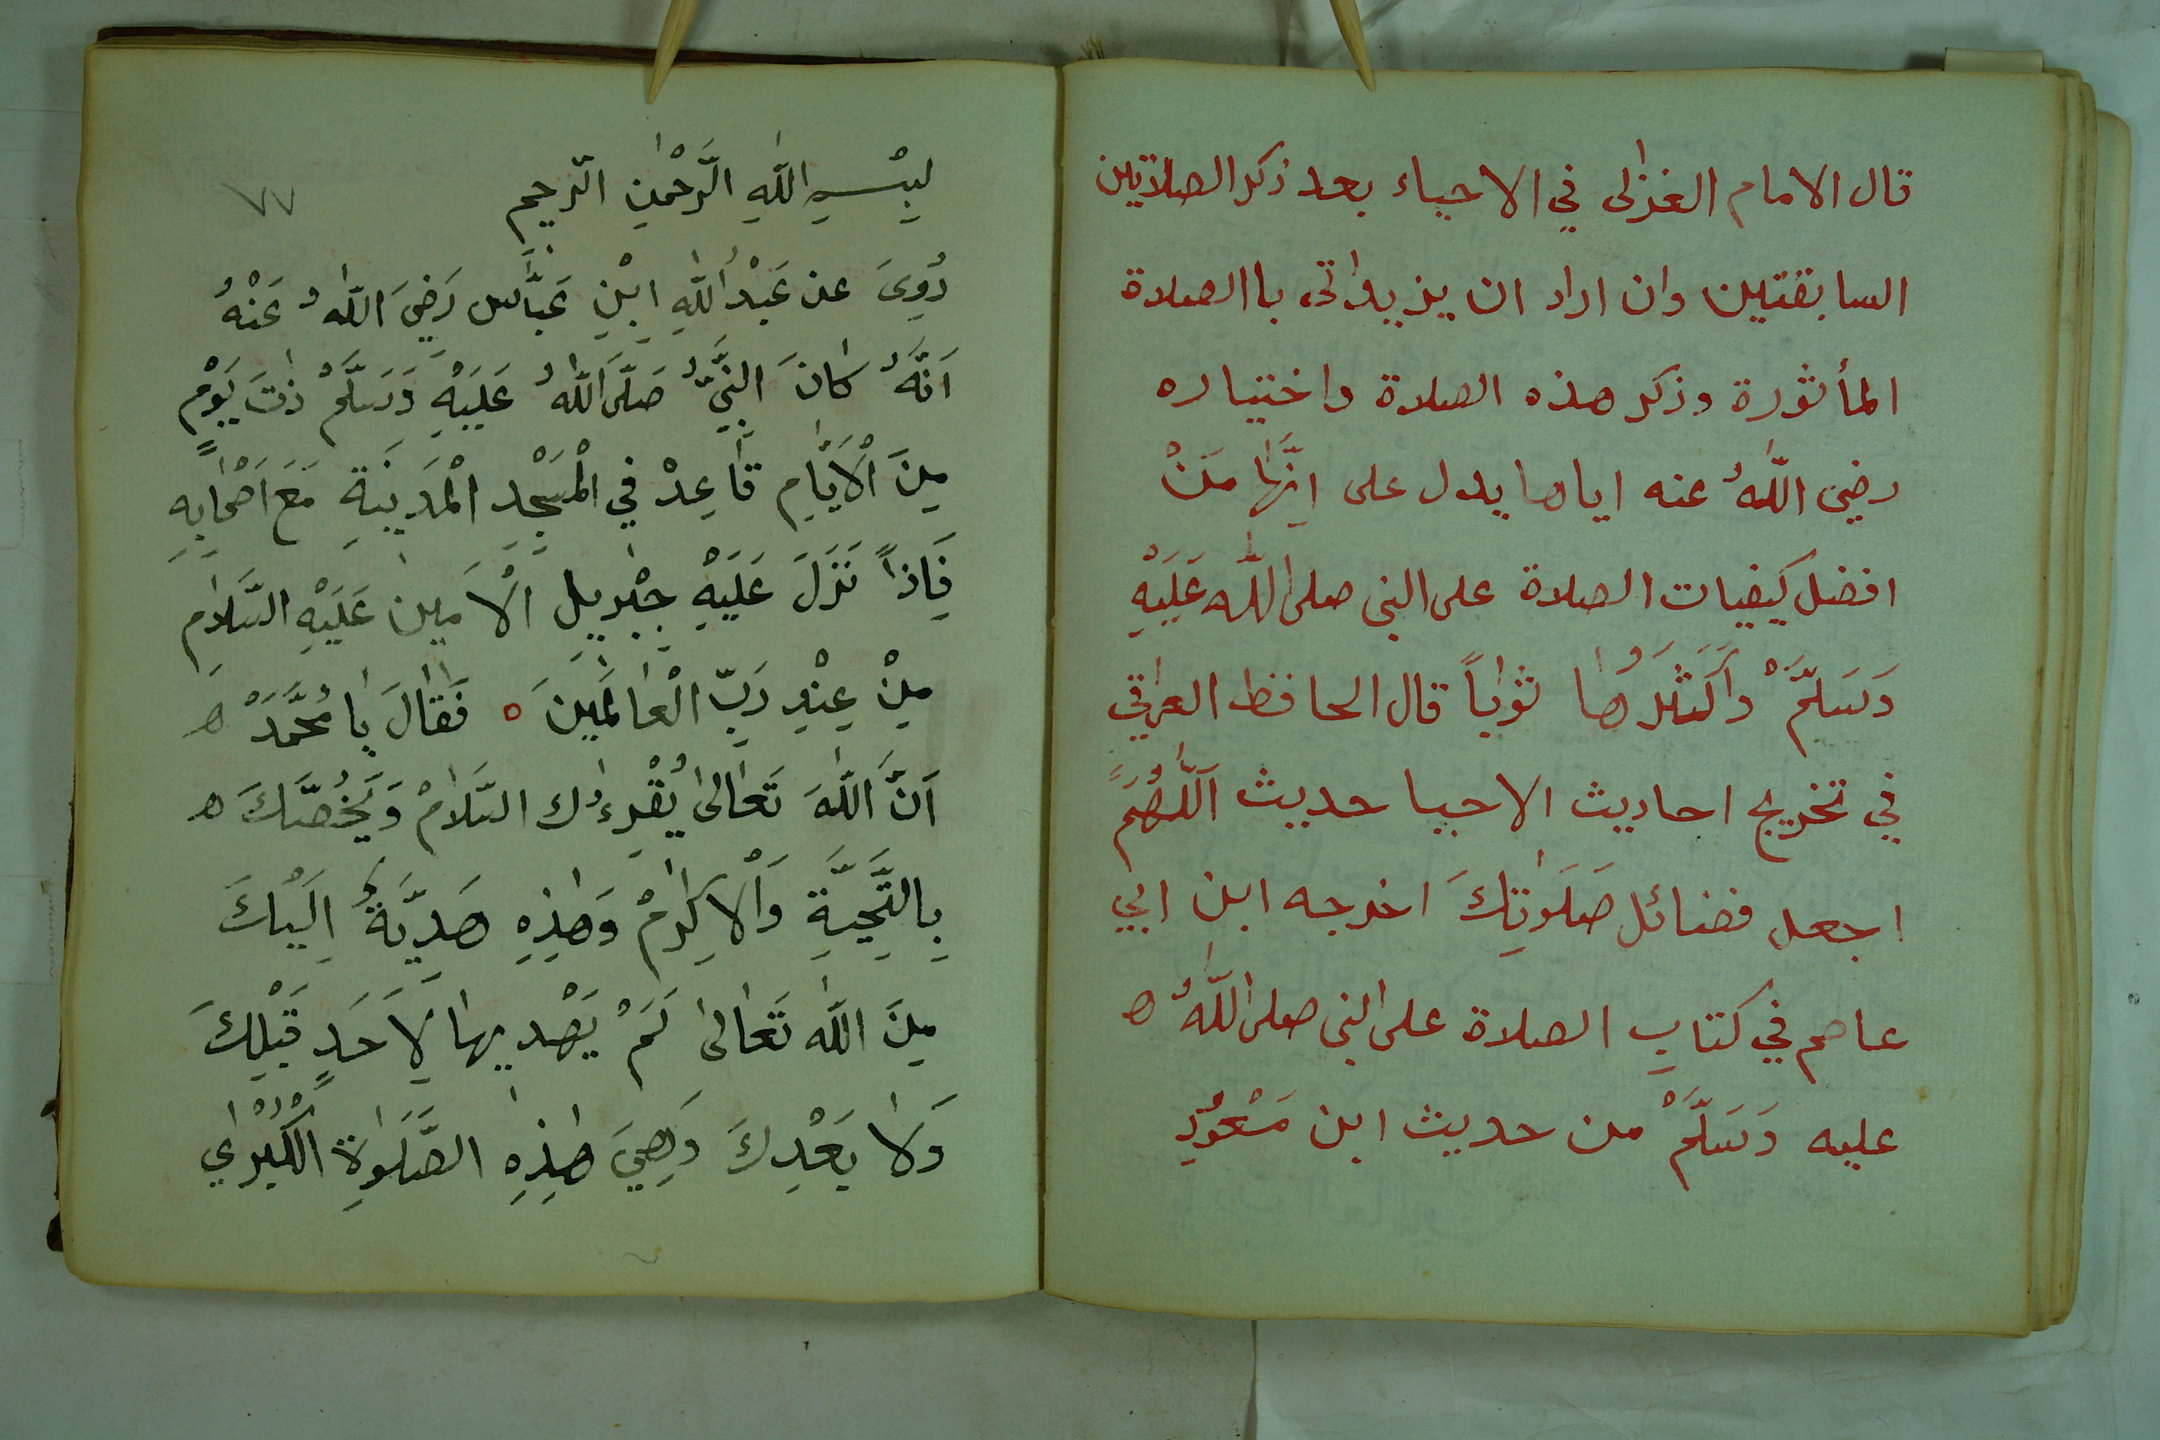 قال الامام الغزٰلى في الاحياء بعد ذكر الصلاتين
السابقتين وان اراد ان يزيد اتى باالصلاة
المأثورة وذكر هذه الصلاة واختياره
رضي اللّٰهُ عنه اياها يدل على اِنَّهَا مَنْ
افضل كيفيات الصلاة على النبى صلى اللّٰه عَلَيْهِ
وَسَلَّمَْ وَاَكْثَرُهَا ثوٰباً قال الحافظ العرٰقي
في تخريج احاديث الاحيا حديث اَللّٰهُمَّ
اجعل فضائل صَلَوٰتِكَ اخرجه ابن ابي
عاصم في كتابِ الصلاة على النبى صلى اللّٰهُ ه
عليه وَسَلَّمَْ من حديث ابن مَسْعُوْدٍ
٧٧
لِبِسْــمِ اللّٰهِ الرَّحْمٰنِ الرّحيم
رُوِىَ عن عَبْدُاللّٰهِ ابْنِ عَبَّاس رَضِيَ اللّٰهُ عَنْهُ
اَنَّهُ كَانَ النَّبِيُّ صَلَّى اللّٰهُ عَلَيْهِ وَسَلَّمَْ ذٰتَ يَوْمٍ
مِنَ الْاَيَّامِ قَاعِدْ في الْمَسْجِدِ الْمَدِينَةِ مَعَ اَصْحَابِهِ
فَاِذاً نَزَلَ عَلَيْهِ جِبْرِيلِ الْاَمِين عَلَيْهِ السَّلَامِ
مِنْ عِنْدِ رَبِّ الْعَالَمِينَ ه فَقَالَ يَا مُحَمَّدَْ ه
اَنَّ اللّٰهَ تَعَالىٰ يُقْرِءُك السَّلَامْ وَيَخُصَّكَ ه
بِالتَّحِيَّةِ وَالْاِكرٰمْ وَهٰذِهِ هَدِيَّةٌ اِلَيْكَ
مِنَ اللّٰه تَعَالىٰ لَمْ يَهْدِيهَا لِاَحَدٍ قَبْلِكَ
وَلَا بَعْدِكَ وَهِيَ هٰذِهِ الصَّلَوٰةِ الْكُبْرٰي